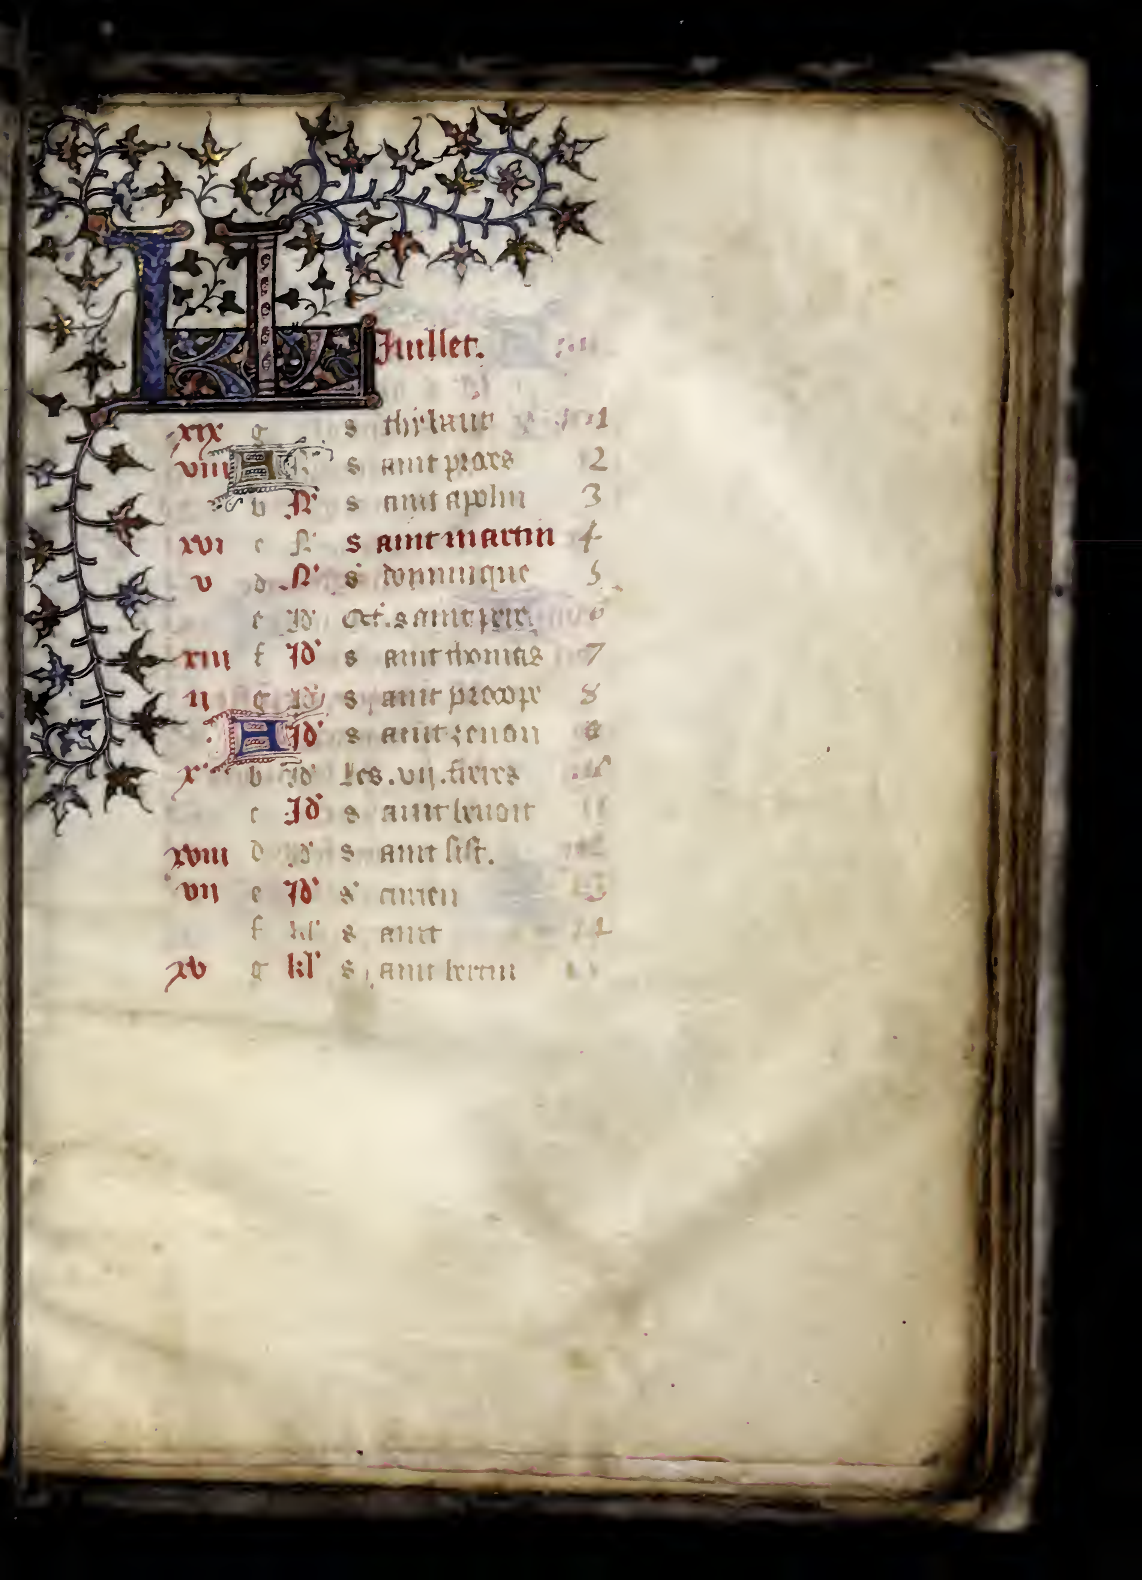 KL Juillet.
xix g s thibaut 1
viii A N s aint prors 2
b N s aint apolin 3
xvi c N s aint martin 4
v d N' s dominique 5
e Id' Oct. s aint pere 6
xiii f Id' s aint thomas 7
ii g Id' s aint procope 8
A Id' s aint zenon
x b Id' les .vii. freres
c Id' s aint benoit 11
xviii d Id' s aint sist. 12
vii e Id' s amen 13
f kl' s aint 14
xv g kl' s aint